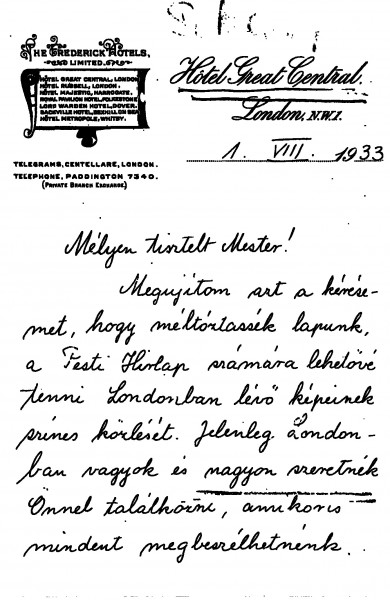 The Frederick Hotels,
Limited.
Hôtel Great Central, London
Hôtel Russell, London.
Hôtel Majestic, Harrogate.
Royal Pavilion Hotel, Folkestone
Lord Warden Hotel, Dover.
Sackville Hotel, Bexhill on Sea
Hôtel Metropole, Whitby.
Telegrams, Centellare, London.
Telephone, Paddington 7340.
(Private Branch Exchange)
Hôtel Great Central.
London, N.W.1.
1. VIII. 1933
Mélyen tisztelt Mester!
Megujítom azt a kérése-
met, hogy méltóztassék lapunk,
a Pesti Hirlap számára lehetővé
tenni Londonban lévő képeinek
színes közlését. Jelenleg London-
ban vagyok és nagyon szeretnék
Önnel találkozni, amikoris
mindent megbeszélhetnénk.